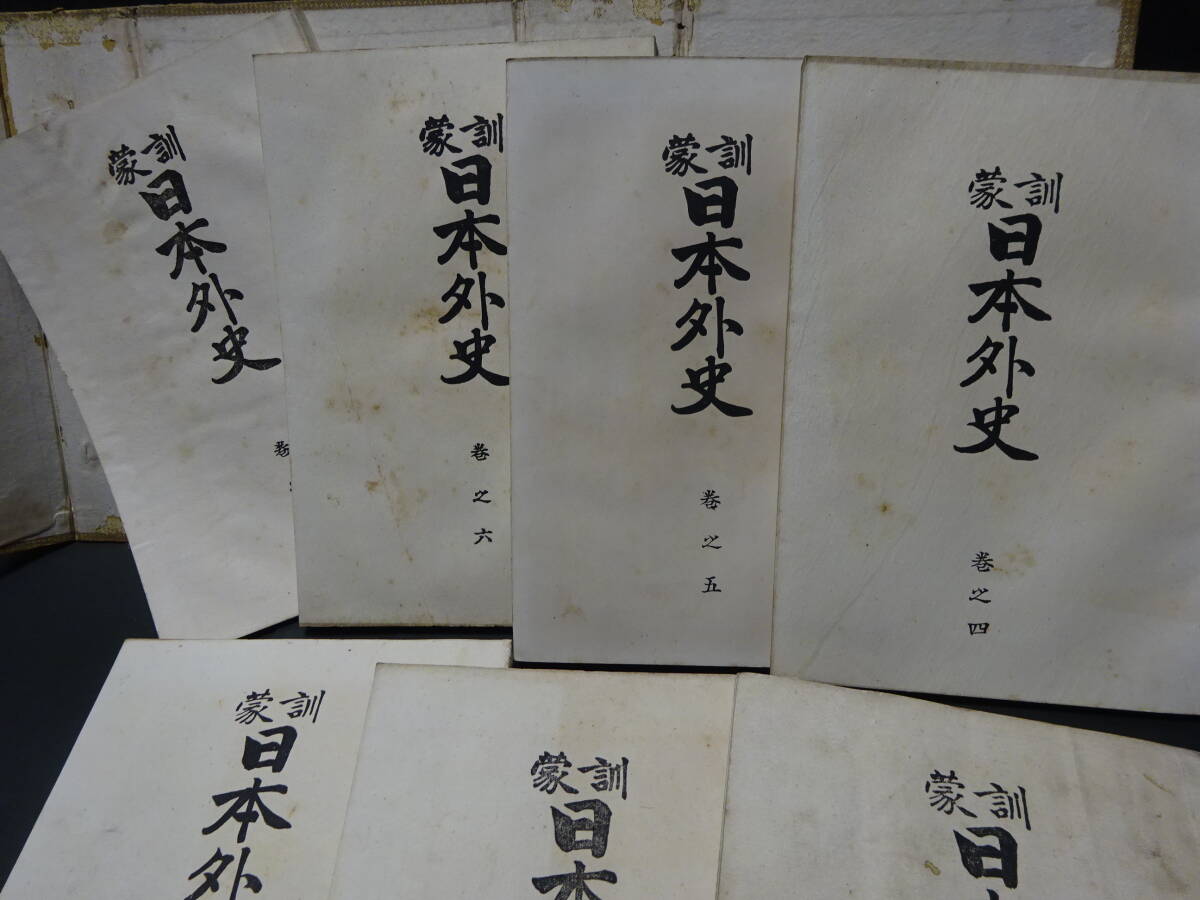 訓蒙
日本外史
巻之四
訓蒙
日本外史
巻之五
訓蒙
日本外史
巻之六
訓蒙
日本外史
巻
訓蒙
日
訓蒙
日本
訓蒙
日本外